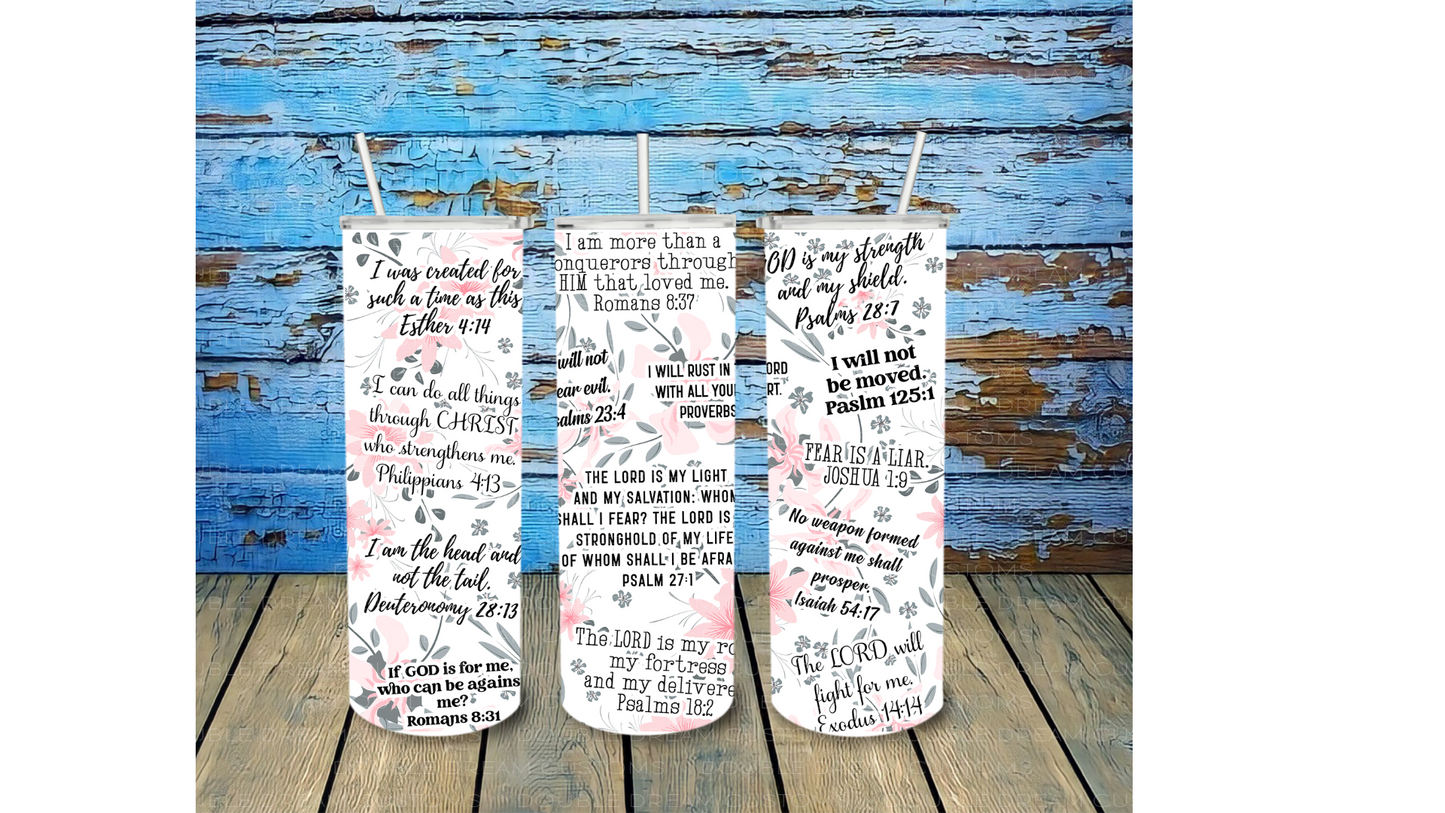 I was created for
such a time as this
Esther 4:14
I can do all things
through CHRIST
who strengthens me.
Philippians 4:13
I am the head and
not the tail.
Deuteronomy 28:13
If GOD is for me,
who can be agains
me?
Romans 8:31
I am more than a
onquerors through
HIM that loved me.
Romans 8:37
will not
ear evil.
salms 23:4
I WILL RUST IN
WITH ALL YOU
PROVERBS
THE LORD IS MY LIGHT
AND MY SALVATION: WHOM
SHALL I FEAR? THE LORD IS
STRONGHOLD OF MY LIFE
OF WHOM SHALL I BE AFRA
PSALM 27:1
The LORD is my ro
my fortress
and my delivere
Psalms 18:2
OD is my strength
and my shield.
Psalms 28:7
ORD
RT.
I will not
be moved.
Paslm 125:1
FEAR IS A LIAR.
JOSHUA 1:9
No weapon formed
against me shall
prosper.
Isaiah 54:17
The LORD will
fight for me.
Exodus 14:14
DOUBLE DREAM CUSTOMS